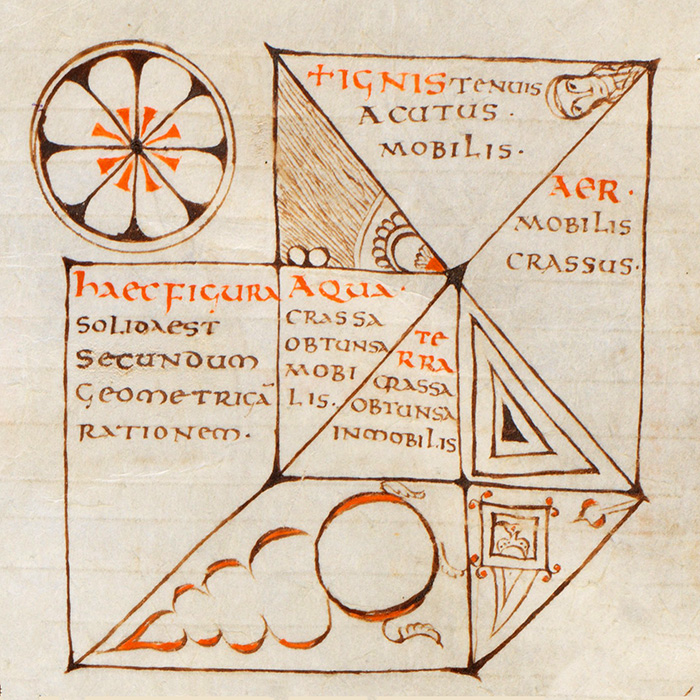 +IGNIS TENUIS
ACUTUS ·
MOBILIS ·
AER ·
MOBILIS
CRASSUS ·
haec FIGURA
SOLIDA EST
SECUNDUM
GEOMETRICĀ
RATIONEM ·
AQUA ·
CRASSA
OBTUNSA
MOBI
LIS ·
TE
RRA
CRASSA
OBTUNSA
INMOBILIS